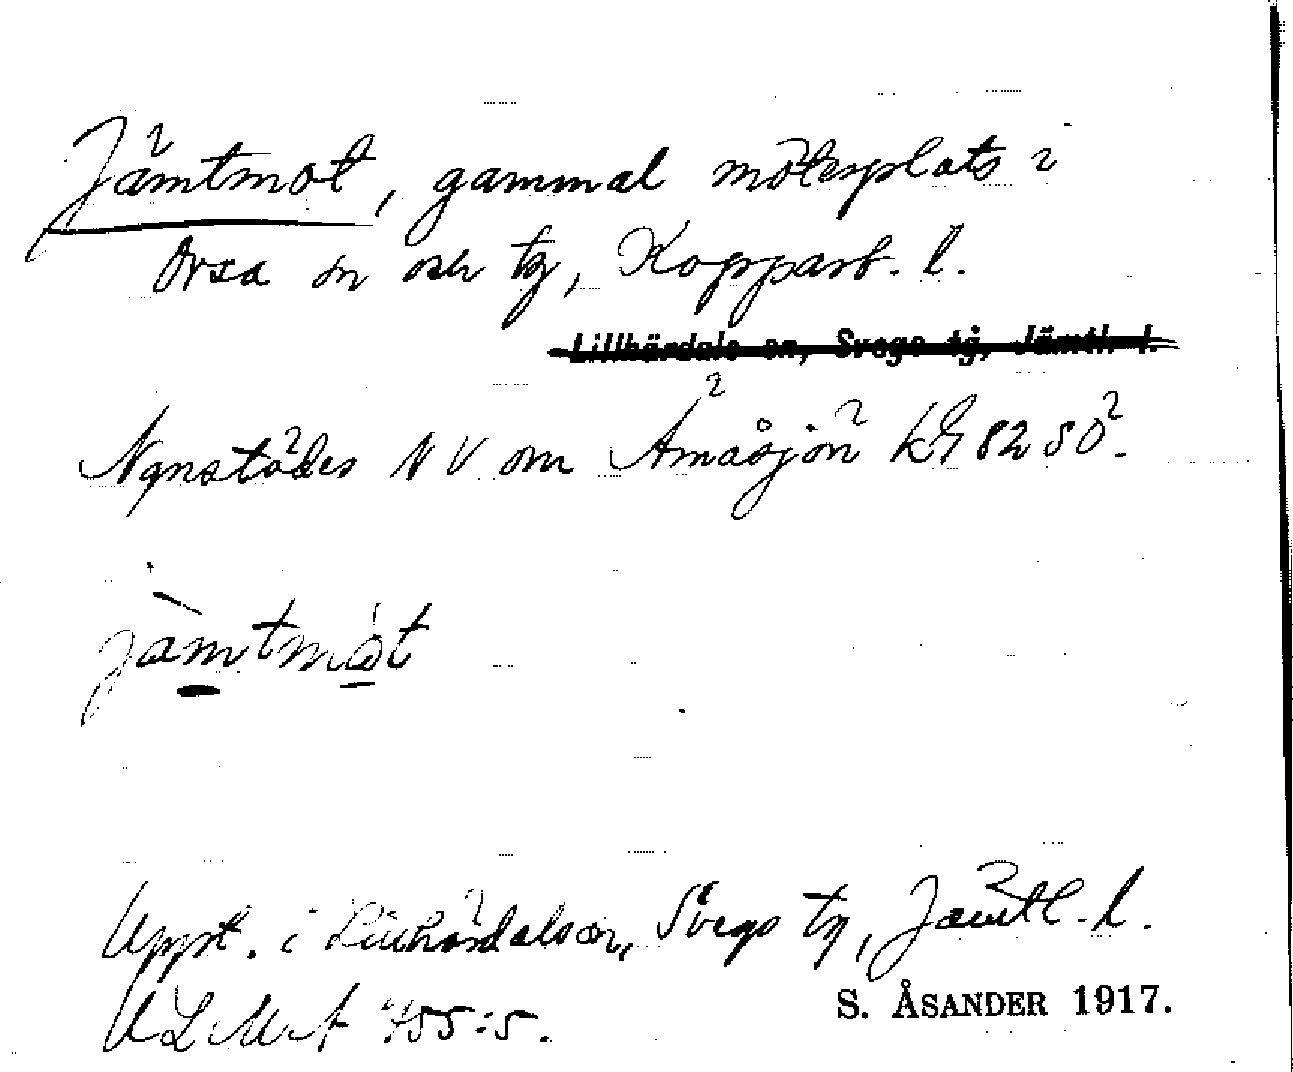 Jämtmot, gammal mötesplats i
Orsa sn och tg, Kopparb. l.
Lillhärdals sn, Svegs tg, Jämtl. l.
Någnstädes NV om Åmåsjön
jämtmot
Uppt. i Lillhärdals sn, Svegs tg, Jämtl. l.
ULMA 455:5.
S. ÅSANDER 1917.